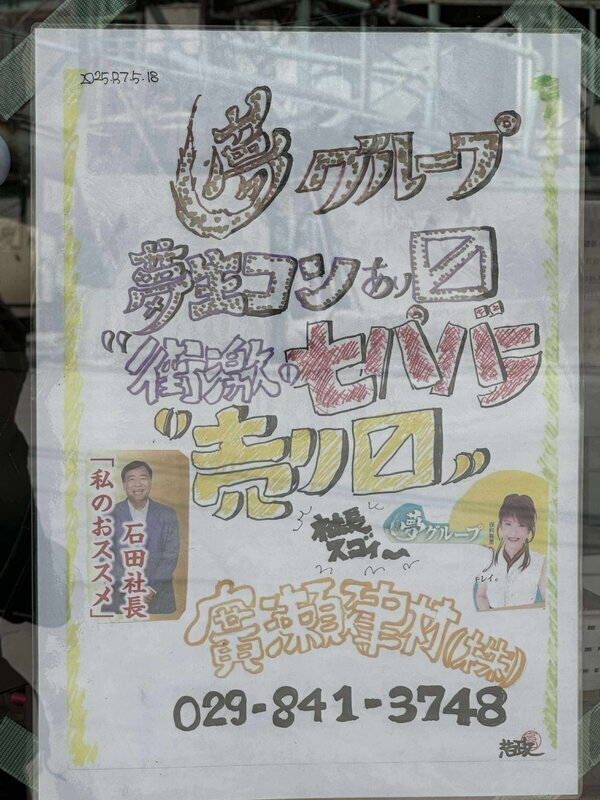 2025.R7.5.18
夢グループ
夢生コンあり〼
“衝激のセパバラ
“売り〼”
「私のおススメ」
石田社長
社長
スゴィ〜
夢グループ
保科有里
キレイ。
廣瀬建材(株)
029-841-3748